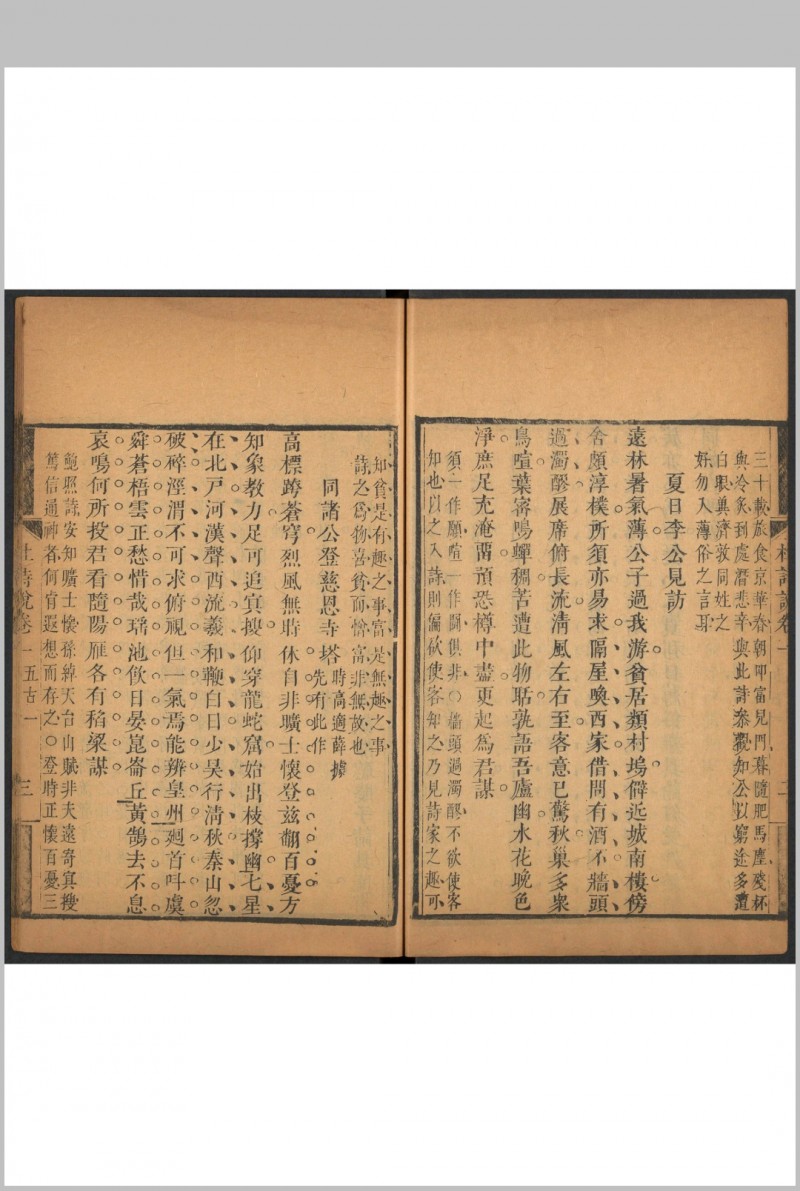 三十載旅食京華春朝叩富兒門暮隨肥馬塵殘杯
與冷炙到處潛悲辛與此詩參觀知公以窮途多遭
白眼異濟敦同姓之
好勿入薄俗之言耳
夏日李公見訪
遠林暑氣薄公子過我游貧居類村塢僻近城南樓傍
舍頗淳樸所須亦易求隔屋喚西家借問有酒不牆頭
過濁醪展席俯長流清風左右至客意已驚秋巢多衆
鳥喧葉密鳴蟬稠苦遭此物聒孰語吾廬幽水花晚色
淨庶足充淹留預恐樽中盡更起為君謀
須一作願喧一作鬭俱非○牆頭過濁醪不欲使客
知也以之入詩則偏欲使客知之乃見詩家之趣可
杜詩說卷一
二
知貧是有趣之事富是無趣之事
詩之為物喜貧而憎富非無故也
同諸公登慈恩寺塔
時高適薛據
先有此作
高標跨蒼穹烈風無時休自非曠士懷登茲翻百憂方
知象教力足可追冥搜仰穿龍蛇窟始出枝撐幽七星
在北戶河漢聲西流羲和鞭白日少昊行清秋秦山忽
破碎涇渭不可求俯視但一氣焉能辨皇州廻首叫虞
舜蒼梧雲正愁惜哉瑤池飲日晏崑崙丘黃鵠去不息
哀鳴何所投君看隨陽雁各有稻粱謀
鮑照詩安知曠士懷孫綽天台山賦非夫遠寄冥搜
篤信通神者何肯遐想而存之○登時正懷百憂三
杜詩說卷一 五古一
三